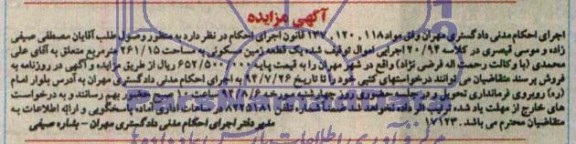 آگهی مزایده
اجرای احکام مدنی دادگستری مهران وفق مواد ۱۱۸ ، ۱۲۰ ، ۱۳۷ قانون اجرای احکام در نظر دارد به منظور وصول طلب آقایان مصطفی صیفی
زاده و موسی قیصری در کلاسه ۲۰/۹۳ اجرایی اموال توقیف شده یک قطعه زمین مسکونی به مساحت ۲۶۱/۱۵ مترمربع متعلق به آقای علی
محمدی (با وکالت رحمت اله فرضی نژاد) واقع در شهر مهران را به قیمت پایه ۶۵۲/۵۰۰/۰۰۰ ریال از طریق مزایده و آگهی در روزنامه به
فروش برسند متقاضیان می توانند درخواستهای کتبی خود را تا تاریخ ۹۳/۷/۲۶ به اجرای احکام مدنی دادگستری مهران به آدرس بلوار امام
(ره) روبروی فرمانداری تحویل و در جلسه حضوری روز چهارشنبه مورخه ۹۳/۸/۶ ساعت ۱۰ صبح حضور بهم رسانند و به درخواست
های خارج از مهلت یاد شده ترتیب اثر داده نخواهد شد ضمنا شماره تلفن ۸۲۲۵۱۸۱ در ساعات اداری آماده پاسخگویی و ارائه اطلاعات به
متقاضیان محترم می باشد. ۱۷۱۲۳ مدیر دفتر اجرای احکام مدنی دادگستری مهران -